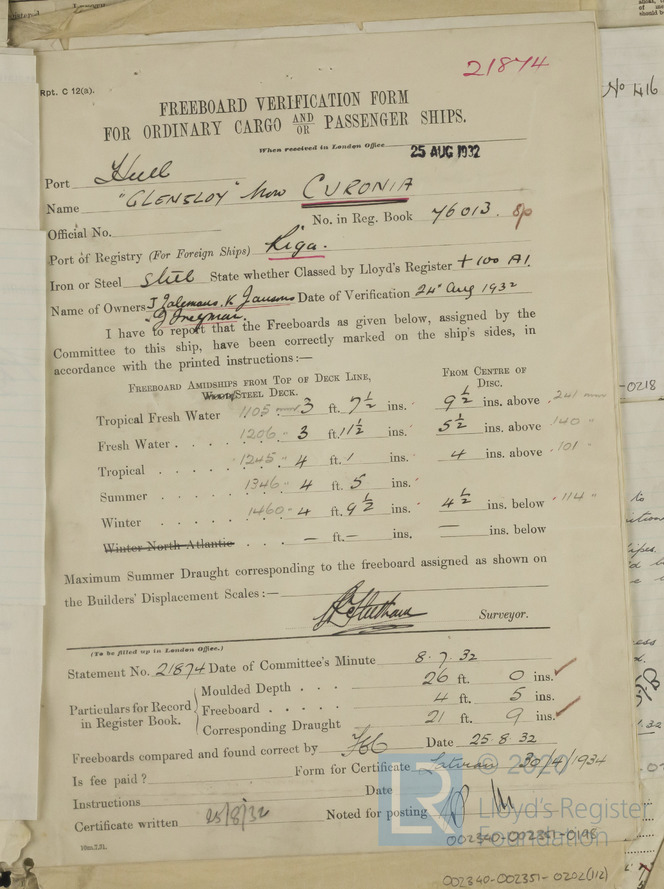 21874
Rpt. C 12(a).
FREEBOARD VERIFICATION FORM
FOR ORDINARY CARGO AND/OR PASSENGER SHIPS.
When received in London Office 25 AUG 1932
Port Hull
Name "GLENSLOY" Now CURONIA
No. in Reg. Book 76013.
Official No.
Port of Registry (For Foreign Ships) Riga.
Iron or Steel Steel State whether Classed by Lloyd's Register + 100 A1.
Name of Owners J Zalcmans, K Jansons Date of Verification 24th Aug 1932
I have to report that the Freeboards as given below, assigned by the
Committee to this ship, have been correctly marked on the ship's sides, in
accordance with the printed instructions:—
FREEBOARD AMIDSHIPS FROM TOP OF DECK LINE, FROM CENTRE OF
STEEL DECK. DISC.
Tropical Fresh Water 1105 3 ft. 7½ ins. 9½ ins. above 241 mm
Fresh Water . . . . 1206 " 3 ft. 11½ ins. 5½ ins. above 140 "
Tropical . . . . . 1245 " 4 ft. 1 ins. 4 ins. above 101 "
Summer . . . . . 1346 " 4 ft. 5 ins.
Winter . . . . . 1460 " 4 ft. 9½ ins. 4½ ins. below 114 "
Winter North Atlantic . . . — ft. — ins. — ins. below
Maximum Summer Draught corresponding to the freeboard assigned as shown on
the Builders' Displacement Scales:—
Surveyor.
(To be filled up in London Office.)
Statement No. 21874 Date of Committee's Minute 8.7.32
Particulars for Record in Register Book.
Moulded Depth . . . 26 ft. 0 ins.
Freeboard . . . . . 4 ft. 5 ins.
Corresponding Draught 21 ft. 9 ins.
Freeboards compared and found correct by Date 25.8.32
Is fee paid? Form for Certificate Latvian 30/4/1934
Instructions Date
Certificate written 25/8/32 Noted for posting
10m.7.31.
LR © 2020
Lloyd's Register
Foundation
002340-002351-0198
002340-002351-0202(1/2)
No 416
-0218